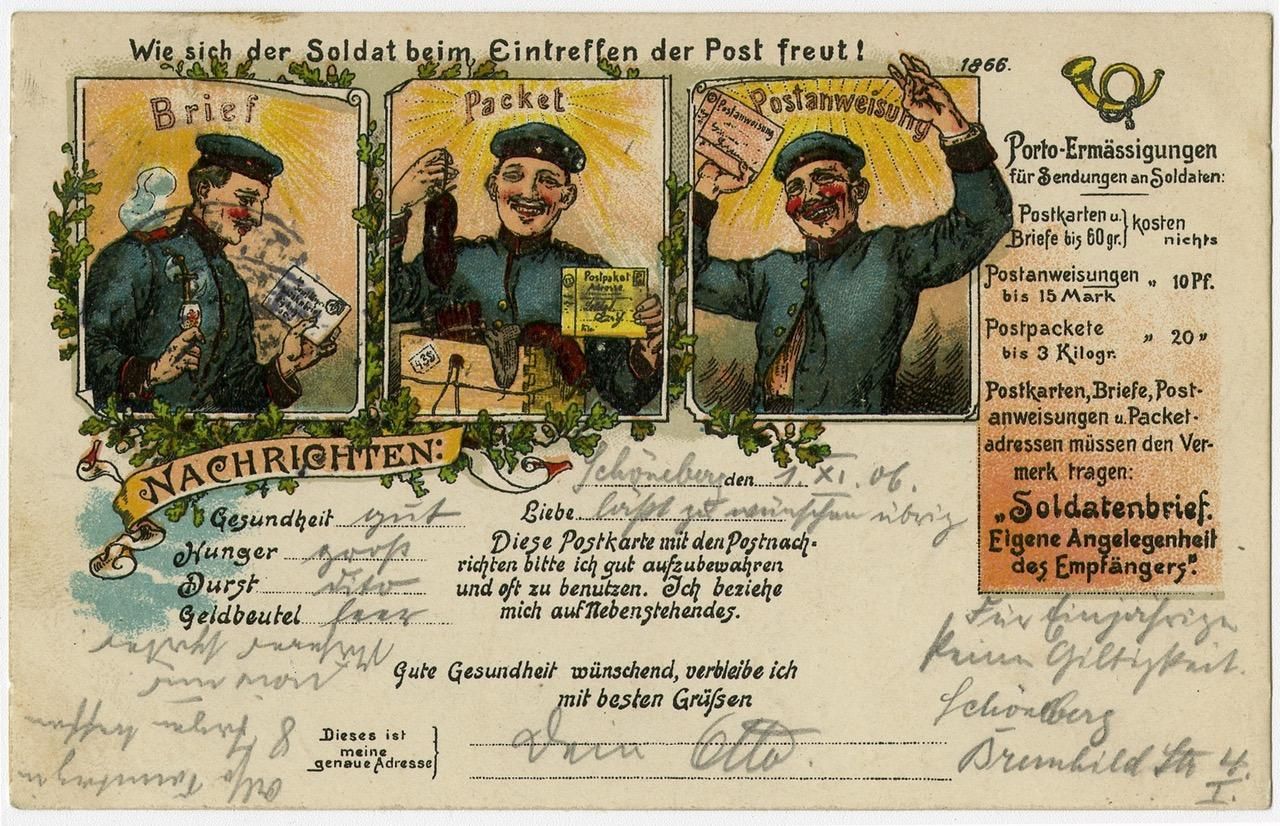 Wie sich der Soldat beim Eintreffen der Post freut!
1866.
Brief
Packet
Postanweisung
Postanweisung
Postpaket
Adresse
438
Porto-Ermässigungen
für Sendungen an Soldaten:
Postkarten u. Briefe bis 60 gr. } kosten nichts
Postanweisungen bis 15 Mark „ 10 Pf.
Postpackete bis 3 Kilogr. „ 20 „
Postkarten, Briefe, Post-
anweisungen u. Packet-
adressen müssen den Ver-
merk tragen:
„Soldatenbrief.
Eigene Angelegenheit
des Empfängers".
NACHRICHTEN:
Schöneberg den 1. XI. 06.
Gesundheit gut
Liebe läßt zu wünschen übrig
Hunger groß
Durst dito
Geldbeutel leer
Diese Postkarte mit den Postnach-
richten bitte ich gut aufzubewahren
und oft zu benutzen. Ich beziehe
mich auf Nebenstehendes.
Gute Gesundheit wünschend, verbleibe ich
mit besten Grüßen
Dein Otto.
Dieses ist
meine
genaue Adresse
Für Einjährige
keine Giltigkeit.
Schöneberg
Bremhild Str 4.
I.
8